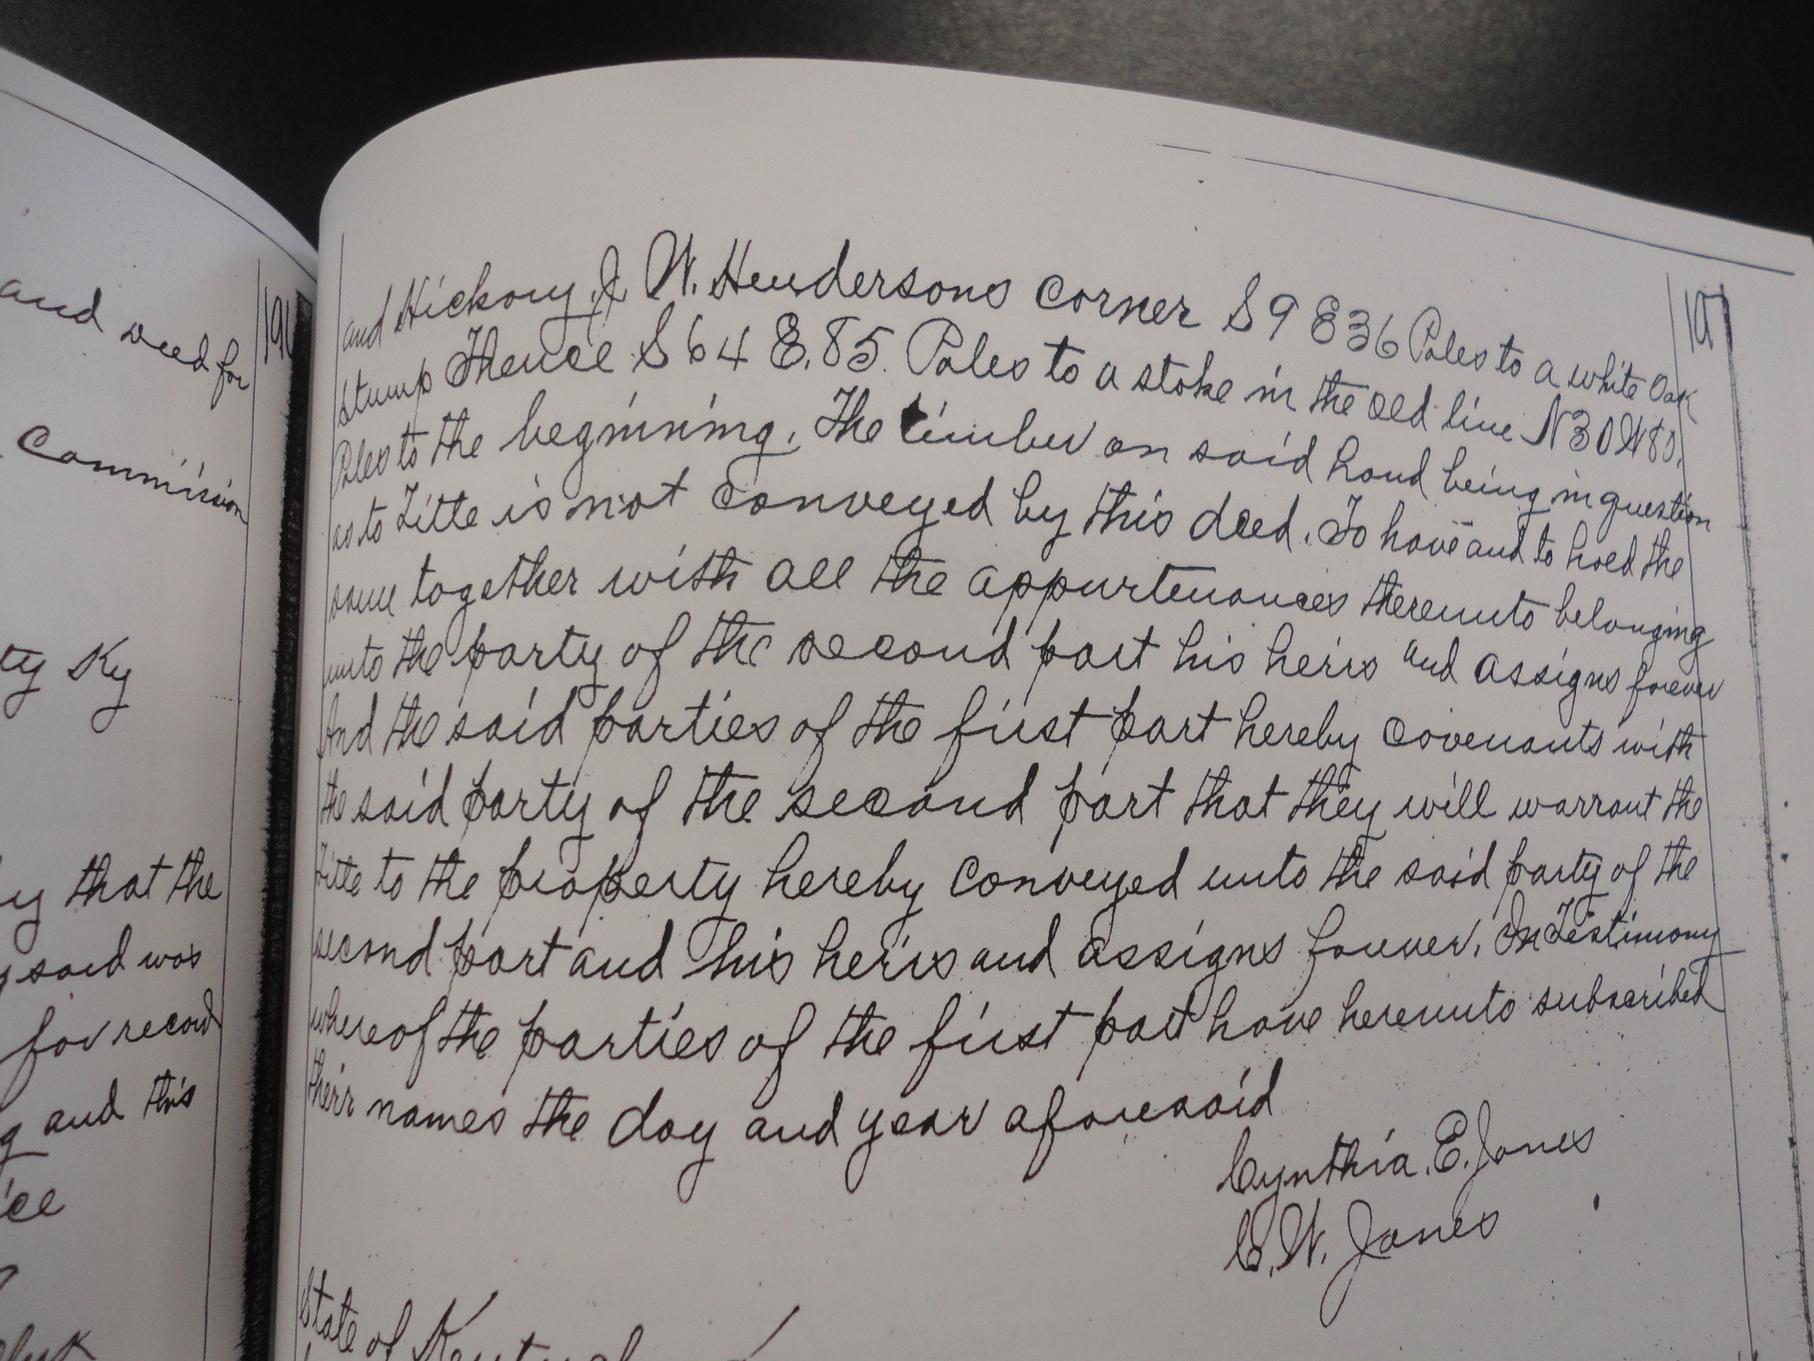 and deed for
Commission
ty Ky
y that the
g said was
for record
g and this
ice
191
and Hickory, J. W. Hendersons corner S 9 E 36 Poles to a white Oak
stump Thence S 64 E. 85. Poles to a stake in the old line N 30 W 80.
Poles to the beginning. The timber on said land being in question
as to Title is not conveyed by this deed. To have and to hold the
same together with all the appurtenances thereunto belonging
unto the party of the second part his heirs and assigns forever
And the said parties of the first part hereby covenants with
the said party of the second part that they will warrant the
Title to the property hereby conveyed unto the said party of the
second part and his heirs and assigns forever. In Testimony
whereof the parties of the first part have hereunto subscribed
their names the day and year aforesaid
Cynthia. E. Jones
C. W. Jones
State of